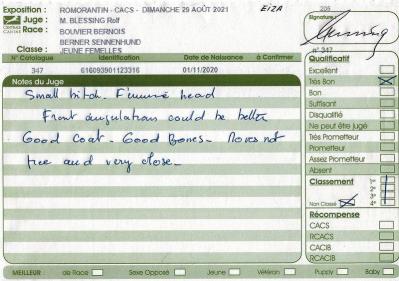 Exposition : ROMORANTIN - CACS - DIMANCHE 29 AOÛT 2021
EIZA
205
CENTRALE CANINE
Juge : M. BLESSING Rolf
Signature :
Race : BOUVIER BERNOIS
BERNER SENNENHUND
Classe : JEUNE FEMELLES
n° 347
N° Catalogue Identification Date de Naissance à Confirmer
347 616093901123316 01/11/2020
Notes du Juge
Small bitch. Féminine head
Front angulations could be better
Good coat - Good Bones - Moves not
free and very close -
Qualificatif
Excellent
Très Bon
Bon
Suffisant
Disqualifié
Ne peut être jugé
Très Prometteur
Prometteur
Assez Prometteur
Absent
Classement
1er
2e
3e
4e
Non Classé
Récompense
CACS
RCACS
CACIB
RCACIB
MEILLEUR : de Race Sexe Opposé Jeune Vétéran Puppy Baby